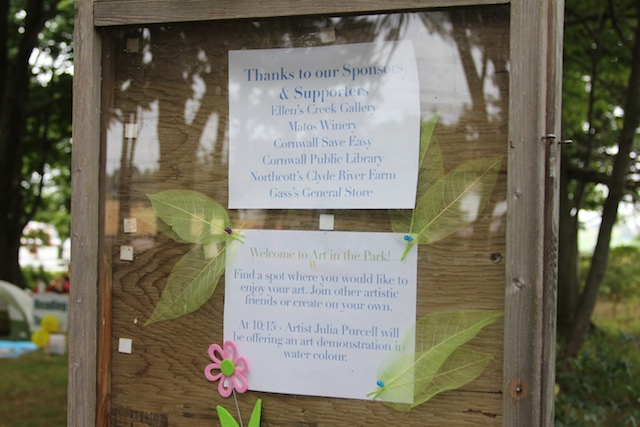 Thanks to our Sponsors
& Supporters
Ellen's Creek Gallery
Matos Winery
Cornwall Save Easy
Cornwall Public Library
Northcott's Clyde River Farm
Gass's General Store
Welcome to Art in the Park!
Find a spot where you would like to
enjoy your art. Join other artistic
friends or create on your own.
At 10:15 - Artist Julia Purcell will
be offering an art demonstration in
water colour.